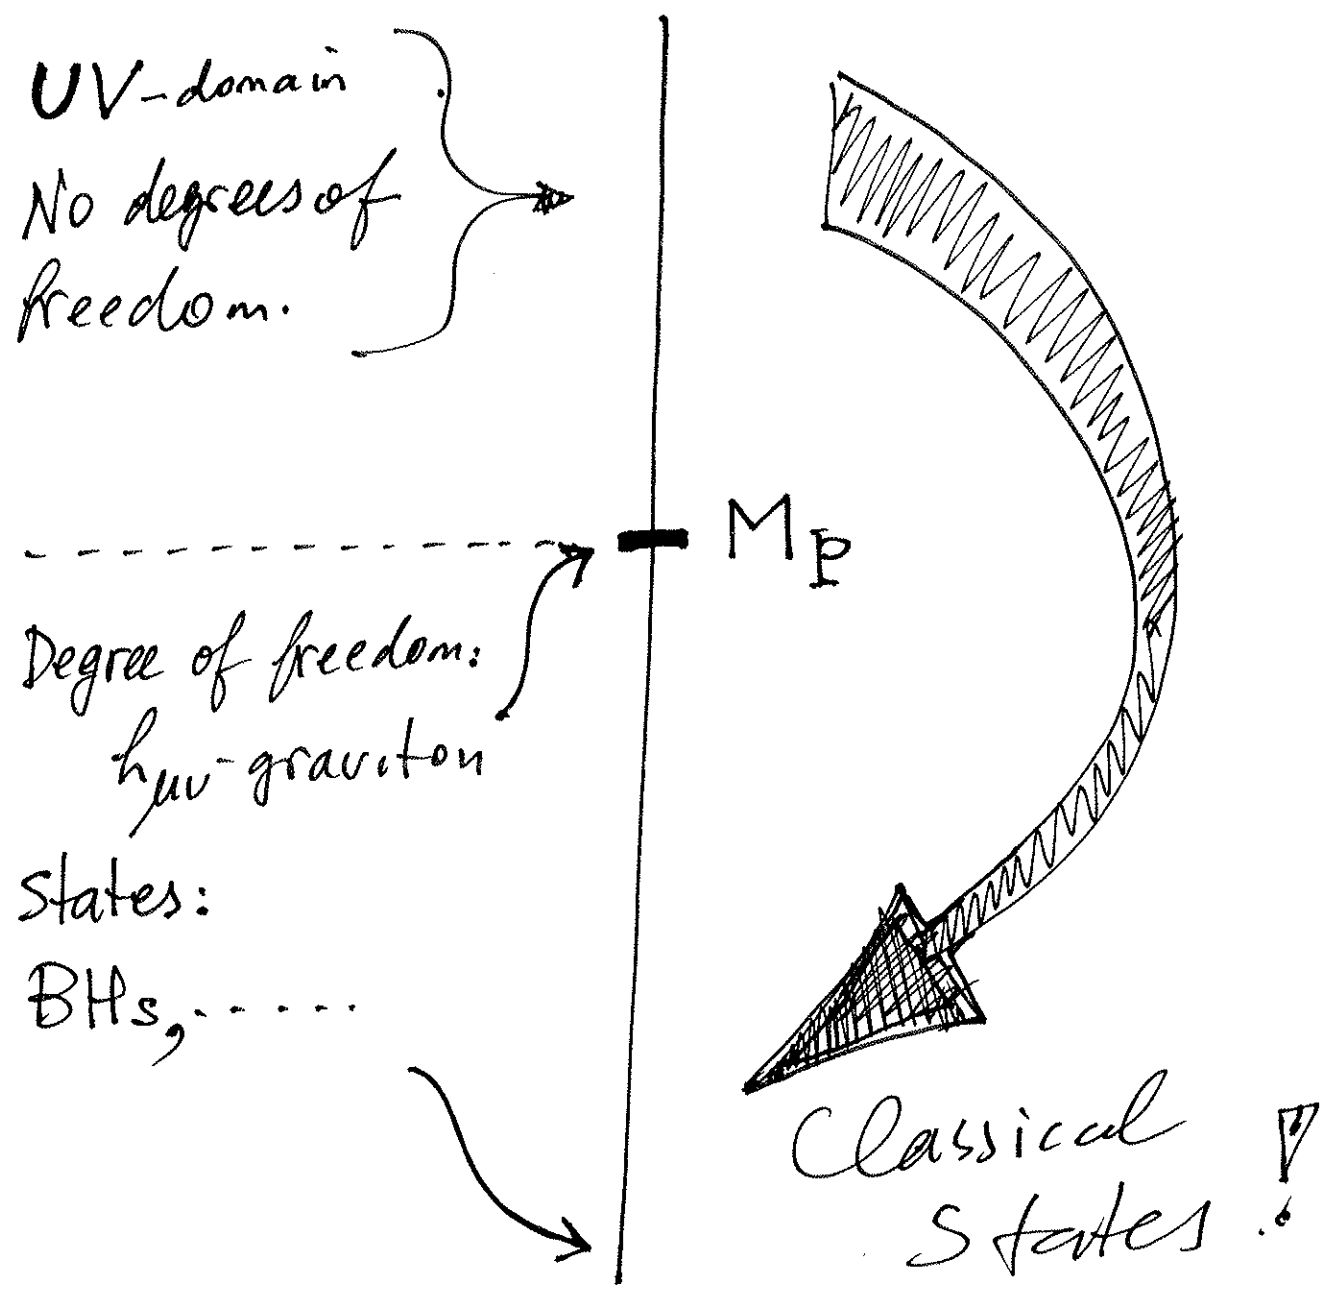 UV-domain
No degrees of
freedom.
Mp
Degree of freedom:
hμν-graviton
States:
BHs,.....
Classical
States!